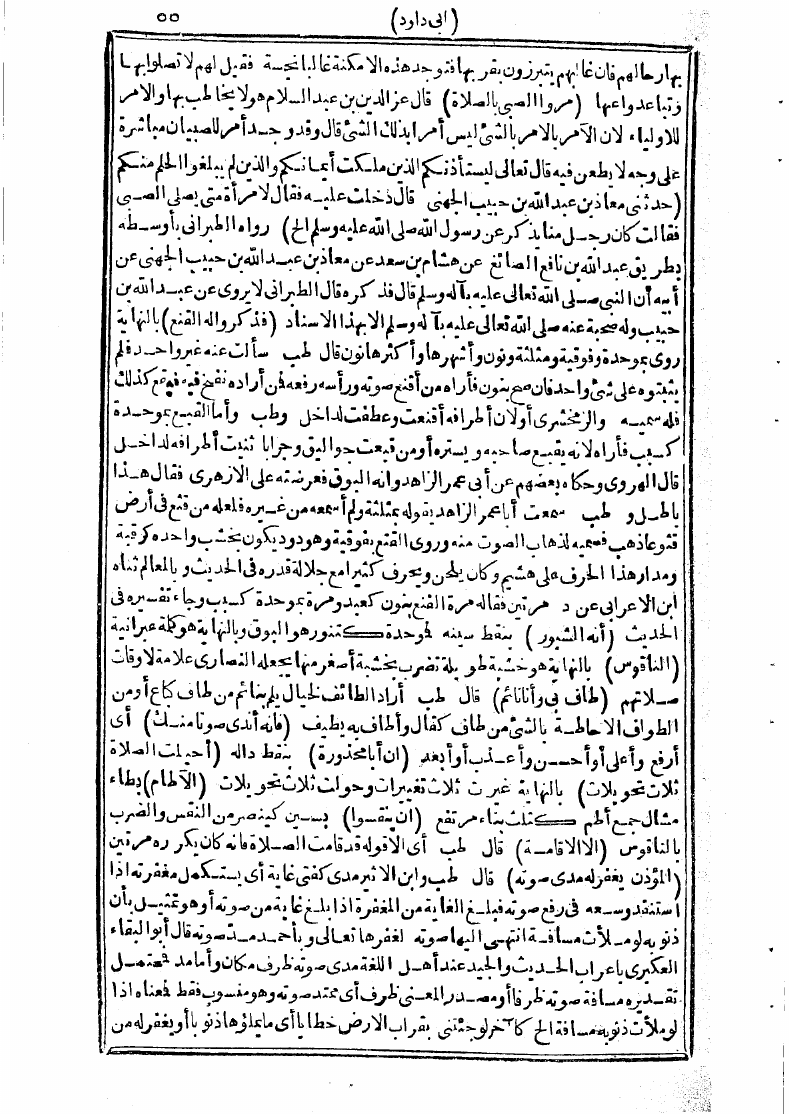 (ابى داود) ٥٥
بها رحالهم فان غالبهم يتبرزون بقربها فتوجد هذه الامكنة غالبا نجسة فقيل لهم لا تصلوا بها
وتباعدوا عنها (مروا الصبى بالصلاة) قال عز الدين بن عبد السلام هو لا يخاطب بها والامر
للاولياء لان الآمر بالامر بالشئ ليس أمرا بذلك الشئ قال وقد وجد أمر للصبيان مباشرة
على وجه لا يطعن فيه قال تعالى ليستأذنكم الذين ملكت أيمانكم والذين لم يبلغوا الحلم منكم
(حدثنى معاذ بن عبد الله بن حبيب الجهنى قال دخلت عليه فقال لامرأة متى يصلى الصبى
فقالت كان رجل منا يذكر عن رسول الله صلى الله عليه وسلم الخ) رواه الطبرانى بأوسطه
بطريق عبد الله بن نافع الصائغ عن هشام بن سعد عن معاذ بن عبد الله بن حبيب الجهنى عن
أبيه أن النبى صلى الله تعالى عليه بآله وسلم قال فذكره قال الطبرانى لا يروى عن عبد الله بن
حبيب وله صحبة عنه صلى الله تعالى عليه بآله وسلم الا بهذا الاسناد (فذكروا له القنع) بالنهاية
روى بموحدة وفوقية ومثلثة ونون وأشهرها وأكثرها نون قال طب سألت عنه غير واحد فلم
يثبتوه على شئ واحد فان صح بنون فأراه من أقنع صوته ورأسه رفعه فمن أراده نفخ فيه فرفع كذلك
فله سميه والزمخشرى أو لان أطرافه أقنعت وعطفت لداخل وطب وأما القبع بموحدة
كسبب فأراه لانه يقبع صاحبه ويستره أو من قبعت جواليق وجرابا ثنيت أطرافه لداخل
قال الهروى وحكاه بعضهم عن أبى عمر الزاهد وانه البوق فعرضته على الازهرى فقال هذا
باطل و طب سمعت أبا عمر الزاهد يقوله بمثلثة ولم أسمعه من غيره فلعله من قثع فى أرض
قثوعا ذهب فسميه لذهاب الصوت منه وروى القتع بفوقية وهو دود يكون بخشب واحده كرقبة
ومدار هذا الحرف على هشيم وكان يلحن ويحرف كثيرا مع جلالة قدره فى الحديث و بالمعالم ثناه
ابن الاعرابى عن د مرتين فقاله مرة القنع بنون كعبد ومرة بموحدة كسبب وجاء تفسيره فى
الحديث (أنه الشبور) بنقط سينه فوحدة كتنور هو البوق وبالنهاية هو كلمة عبرانية
(الناقوس) بالنهاية هو خشبة طويلة تضرب بخشبة أصغر منها يجعله النصارى علامة لاوقات
صلاتهم (طاف بى وأنا نائم) قال طب أراد الطائف لخيال يلم بنائم من طاف كباع أو من
الطواف الاحاطة بالشئ من طاف كقال وأطاف به يطيف (فانه أندى صوتا منك) أى
أرفع وأعلى أو أحسن وأعذب أو أبعد (ان أبا محذورة) بنقط داله (أحيلت الصلاة
ثلاث تحويلات) بالنهاية غيرت ثلاث تغييرات وحولت ثلاث تحويلات (الآطام) بطاء
مشال جمع أطم كثلث بناء مرتفع (ان ينقسوا) بسين كينصر من النقس والضرب
بالناقوس (الا الاقامة) قال طب أى الا قوله قد قامت الصلاة فانه كان يكرره مرتين
(المؤذن يغفر له مدى صوته) قال طب وابن الاثير مدى كفتى غاية أى يستكمل مغفرته اذا
استنفد وسعه فى رفع صوته فيبلغ الغاية من المغفرة اذا بلغ غاية من صوته أو هو تمثيل بأن
ذنوبه لو ملأت مسافة انتهى اليها صوته لغفرها تعالى و بأحمد مد صوته قال أبو البقاء
العكبرى باعراب الحديث والجيد عند أهل اللغة مدى صوته ظرف مكان وأما مد فيحتمل
تقديره مسافة صوته ظرفا أو مصدر المعنى ظرف أى ممتد صوته وهو منسوب فقط فمعناه اذا
لو ملأت ذنوبه مسافة الخ كآخر لو جئتنى بقراب الارض خطايا أى ما يملؤها ذنوبا أو يغفر له من